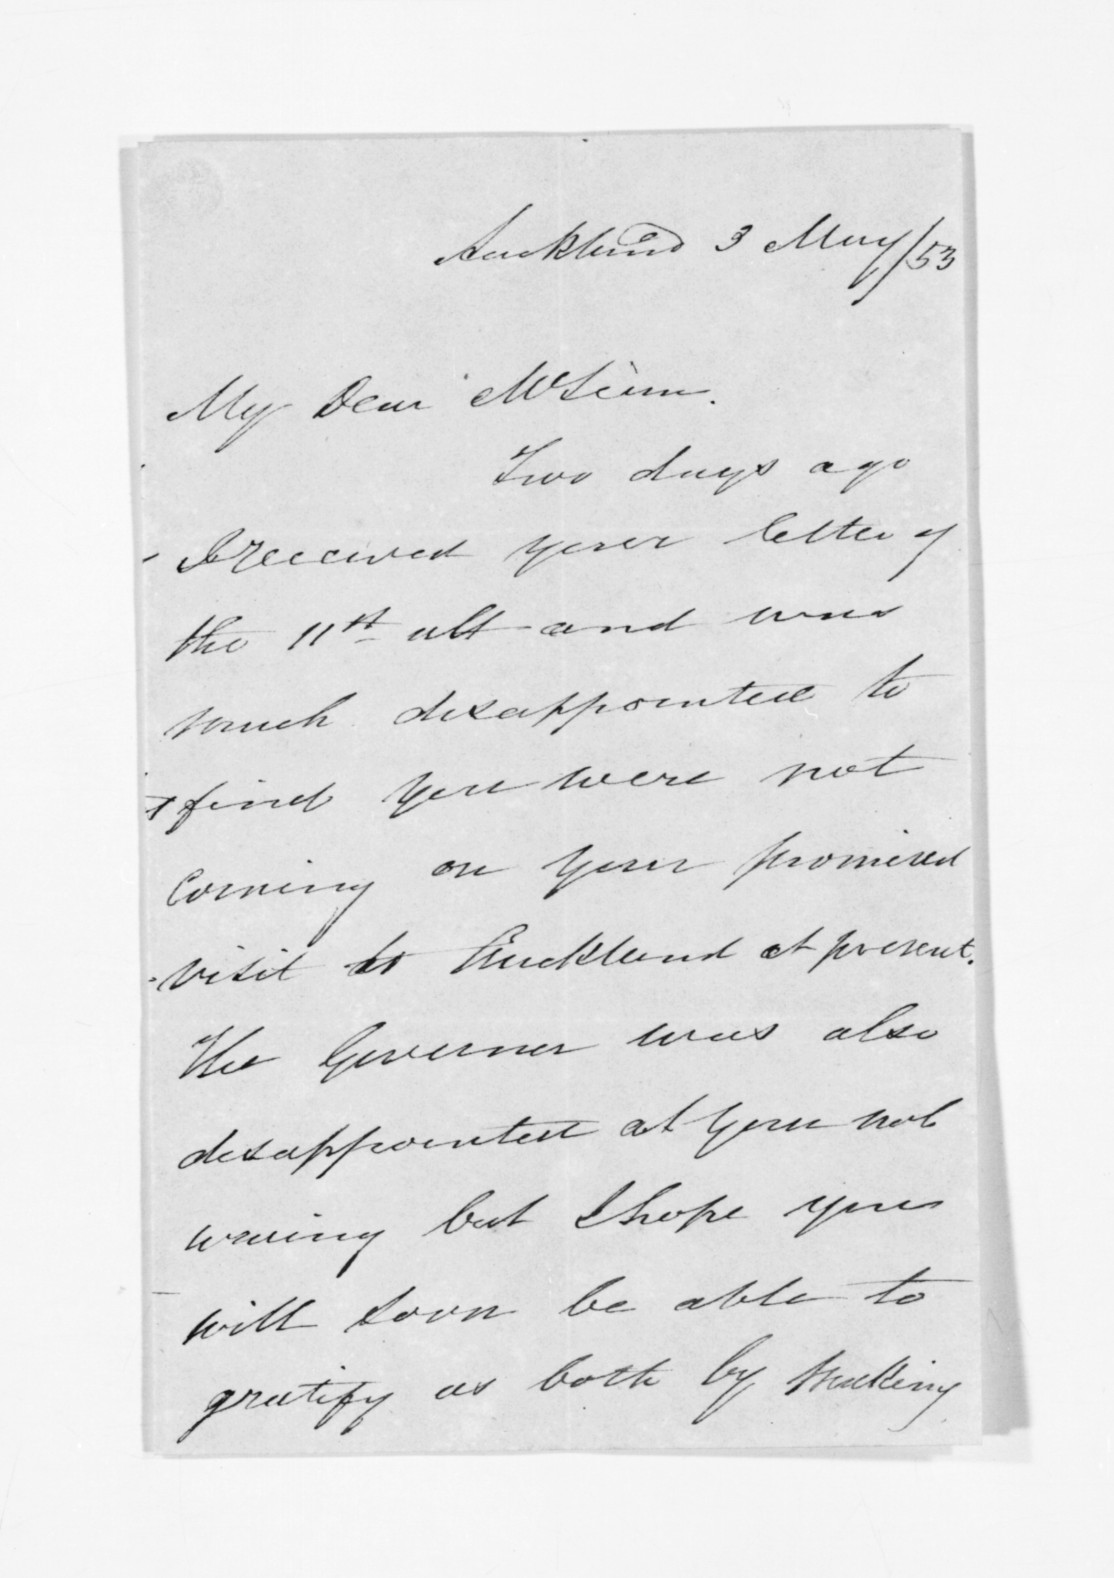 Auckland 3 May/53
My Dear McLean.
Two days ago
I received your letter of
the 11th ult and was
much disappointed to
find you were not
coming on your promised
visit to Auckland at present.
The Governor was also
disappointed at your not
coming but I hope you
will soon be able to
gratify us both by making